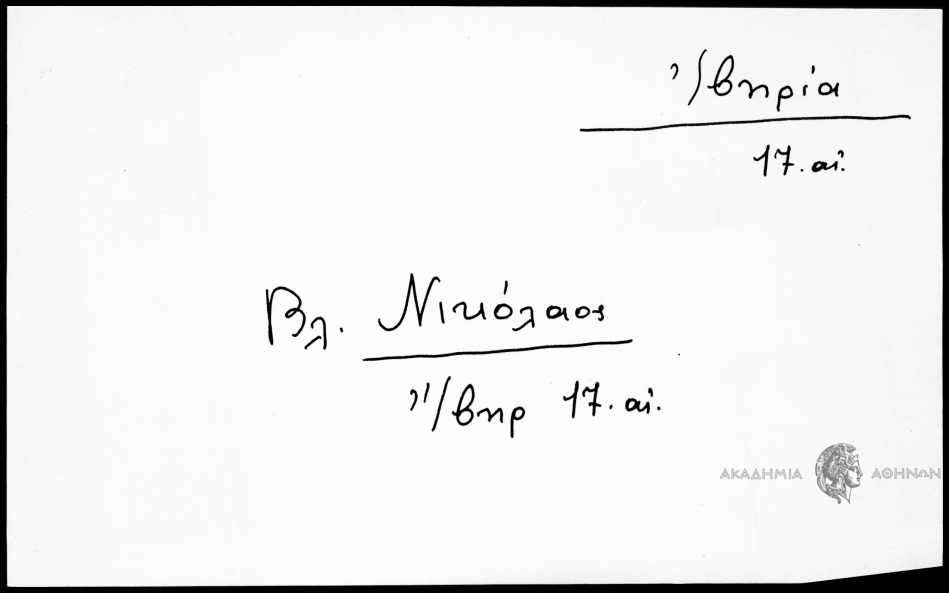 ᾿Ιβηρία
17. αἰ.
Βλ. Νικόλαος
῎Ιβηρ 17. αἰ.
ΑΚΑΔΗΜΙΑ ΑΘΗΝΩΝ